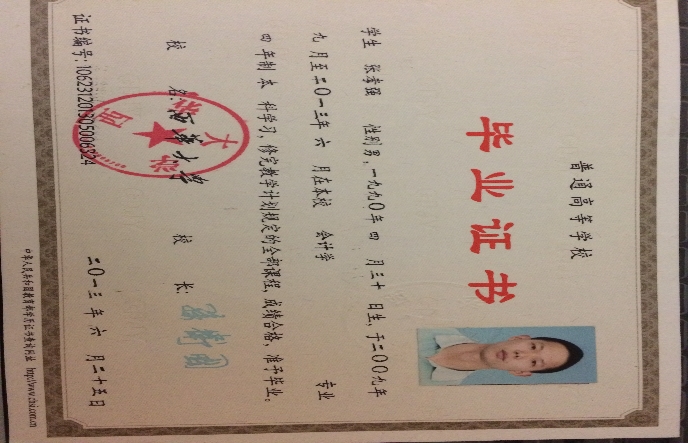 普通高等学校
毕业证书
学生 张孝强 性别男，一九九〇年 四 月三十 日生，于二〇〇九年
九 月至二〇一三年 六 月在本校 会计学 专业
四 年制 本 科学习，修完教学计划规定的全部课程，成绩合格，准予毕业。
校 名：西华大学 校 长：
证书编号：106231201305006324 二〇一三 年 六 月二十五日
中华人民共和国教育部学历证书查询网址 http://www.chsi.com.cn